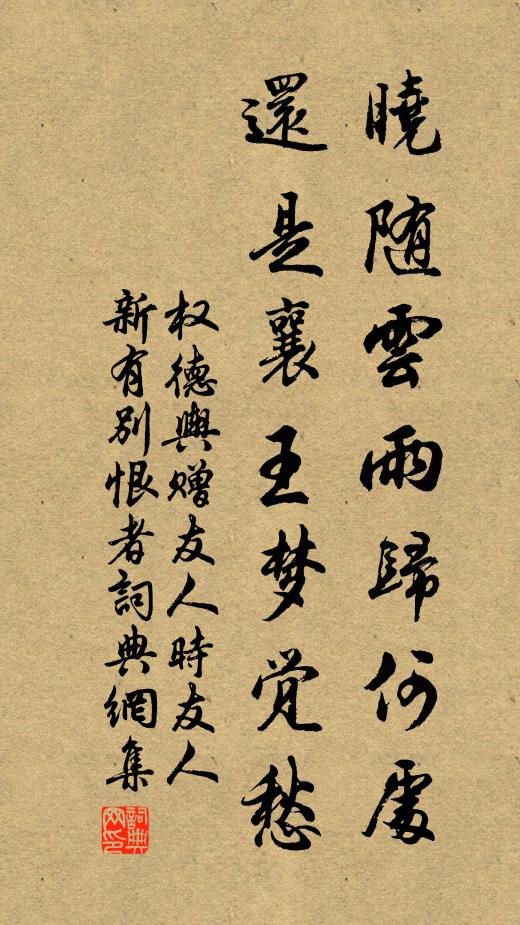 曉随雲雨歸何處
還是襄王梦觉愁
权德輿赠友人時友人
新有别恨者詞典網集
詞典網印